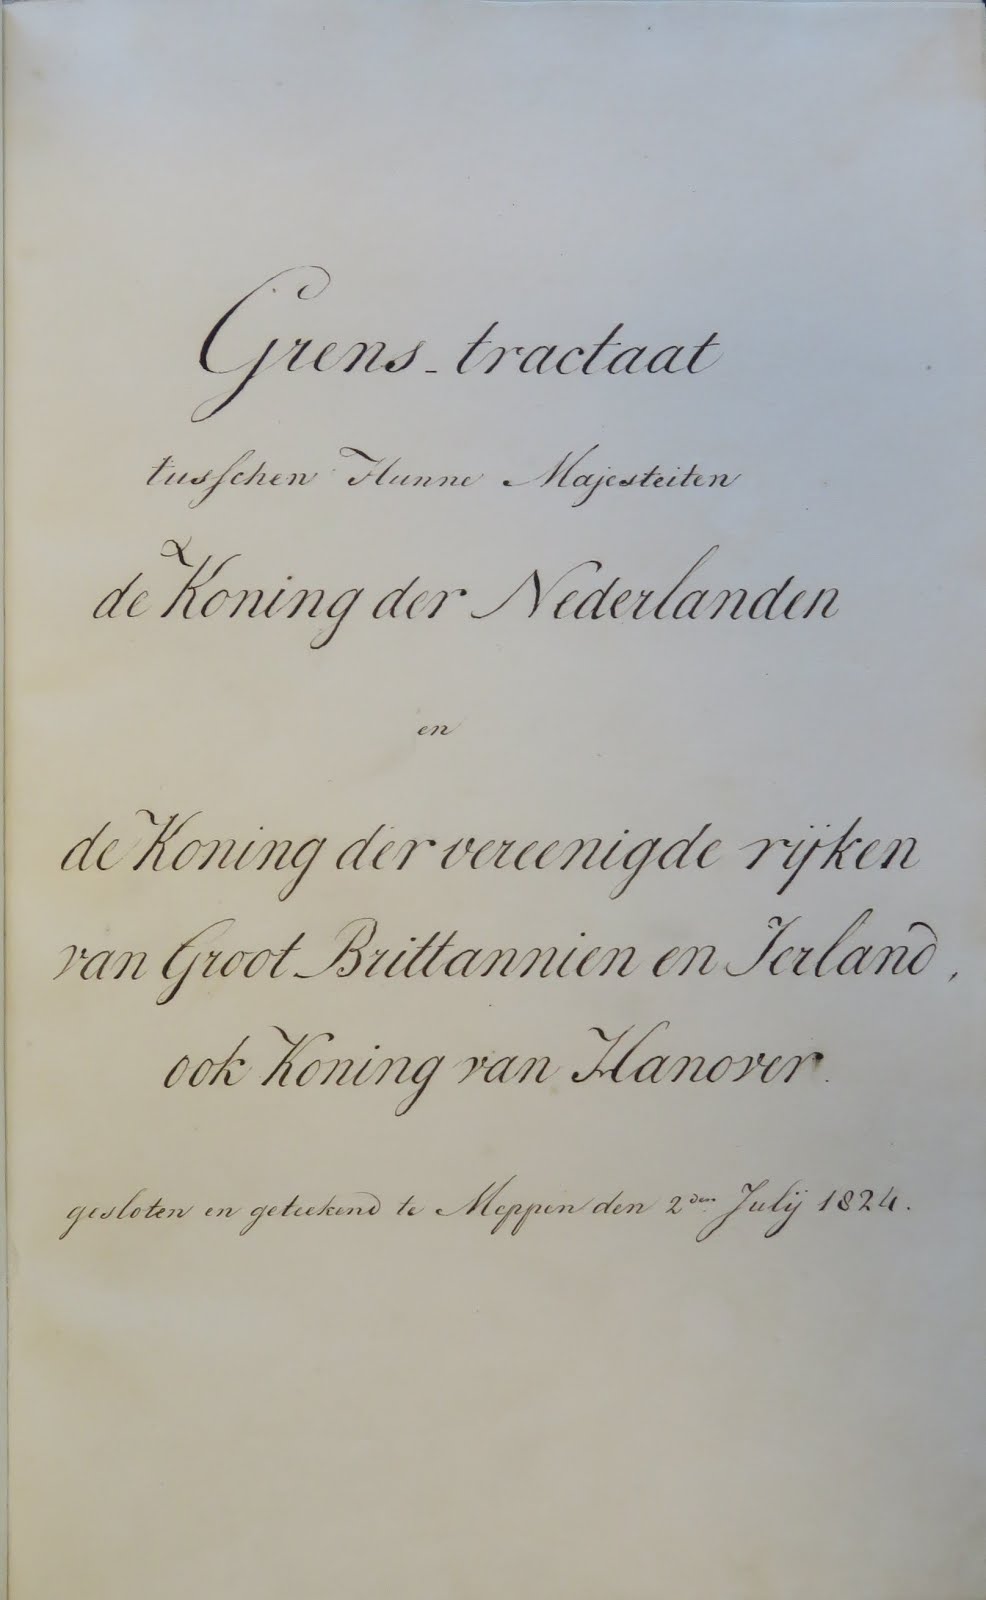 Grens-tractaat
tusschen Hunne Majesteiten
de Koning der Nederlanden
en
de Koning der vereenigde rijken
van Groot Brittannien en Ierland,
ook Koning van Hanover.
gesloten en geteekend te Meppen den 2den July 1824.